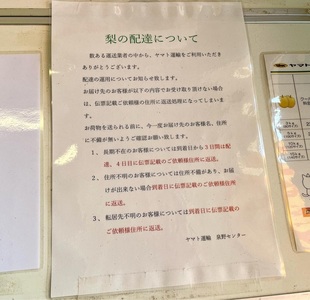 梨の配達について
数ある運送業者の中から、ヤマト運輸をご利用いただき
ありがとうございます。
配達の運用についてお知らせ致します。
お届け先のお客様が以下の内容でお受け取り頂けない場合
は、伝票記載ご依頼様の住所に返送処理になってしまいま
す。
お荷物を送られる前に、今一度お届け先のお客様名、住所
に不備が無いようご確認お願い致します。
1、長期不在のお客様については到着日から3日間は配
達、4日目に伝票記載のご依頼様住所に返送。
2、住所不明のお客様については住所不備があり、お届
けが出来ない場合到着日に伝票記載のご依頼様住所
に返送。
3、転居先不明のお客様については到着日に伝票記載の
ご依頼様住所に返送。
ヤマト運輸
ヤマト